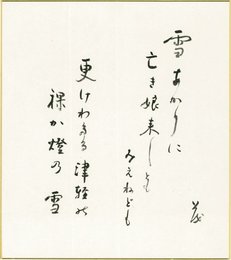 雪あかりに
亡き娘来しとも
みえねども
更けわたる津軽の
裸か燈乃雪
茂